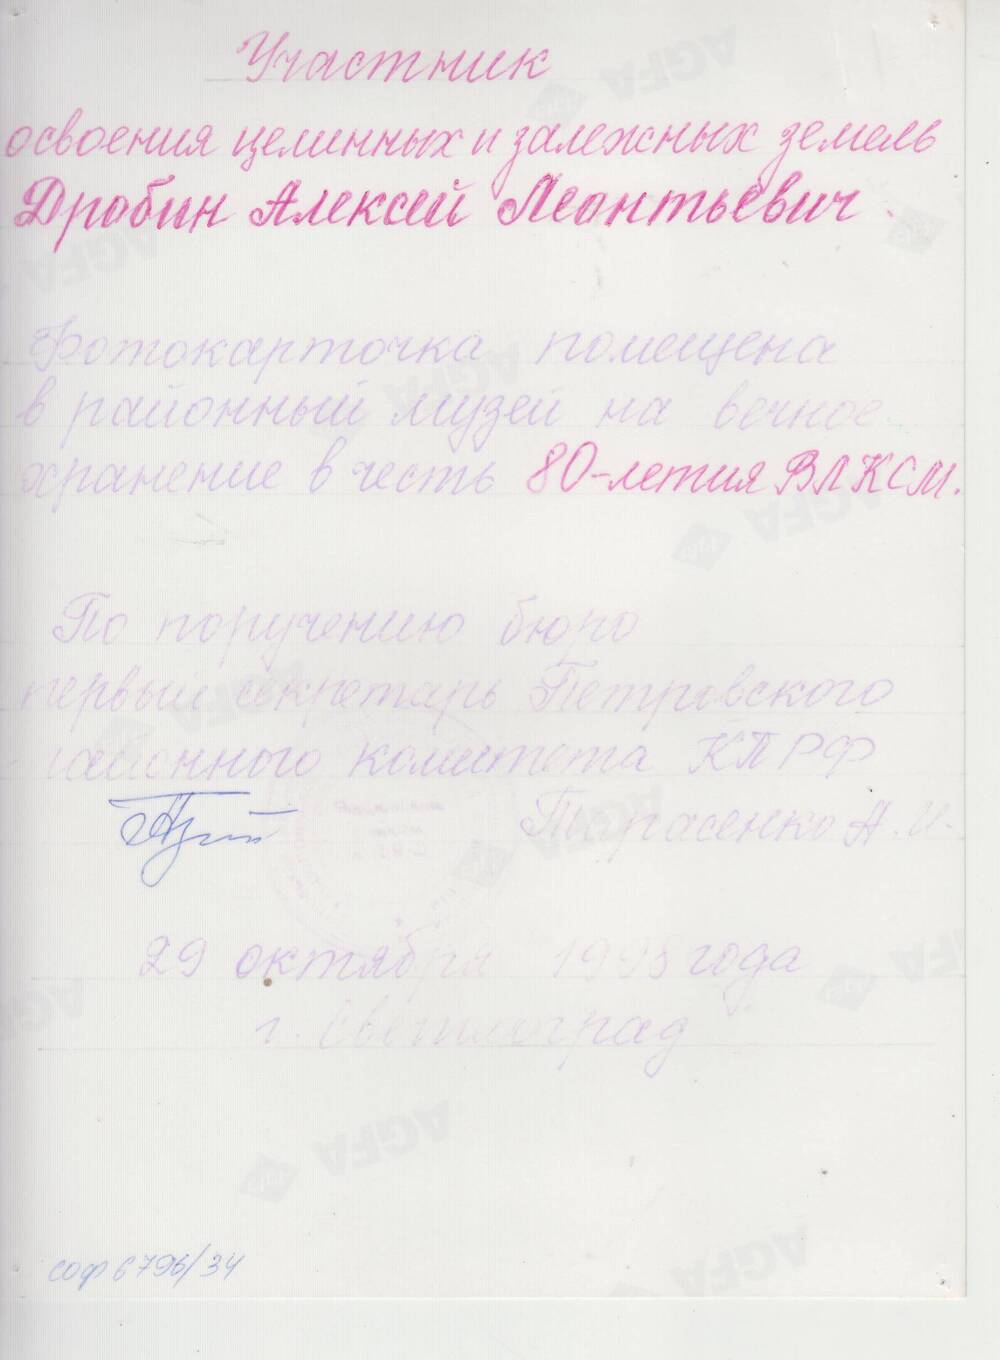 Участник
освоения целинных и залежных земель
Дробин Алексей Леонтьевич.
Фотокарточка помещена
в районный музей на вечное
хранение в честь 80-летия ВЛКСМ.
По поручению бюро
первый секретарь Петровского
районного комитета КПРФ
Тарасенко А.И.
29 октября года
г. Светлоград
соф 6796/34
AGFA
AGFA
AGFA
AGFA
AGFA
AGFA
AGFA
AGFA
AGFA
AGFA